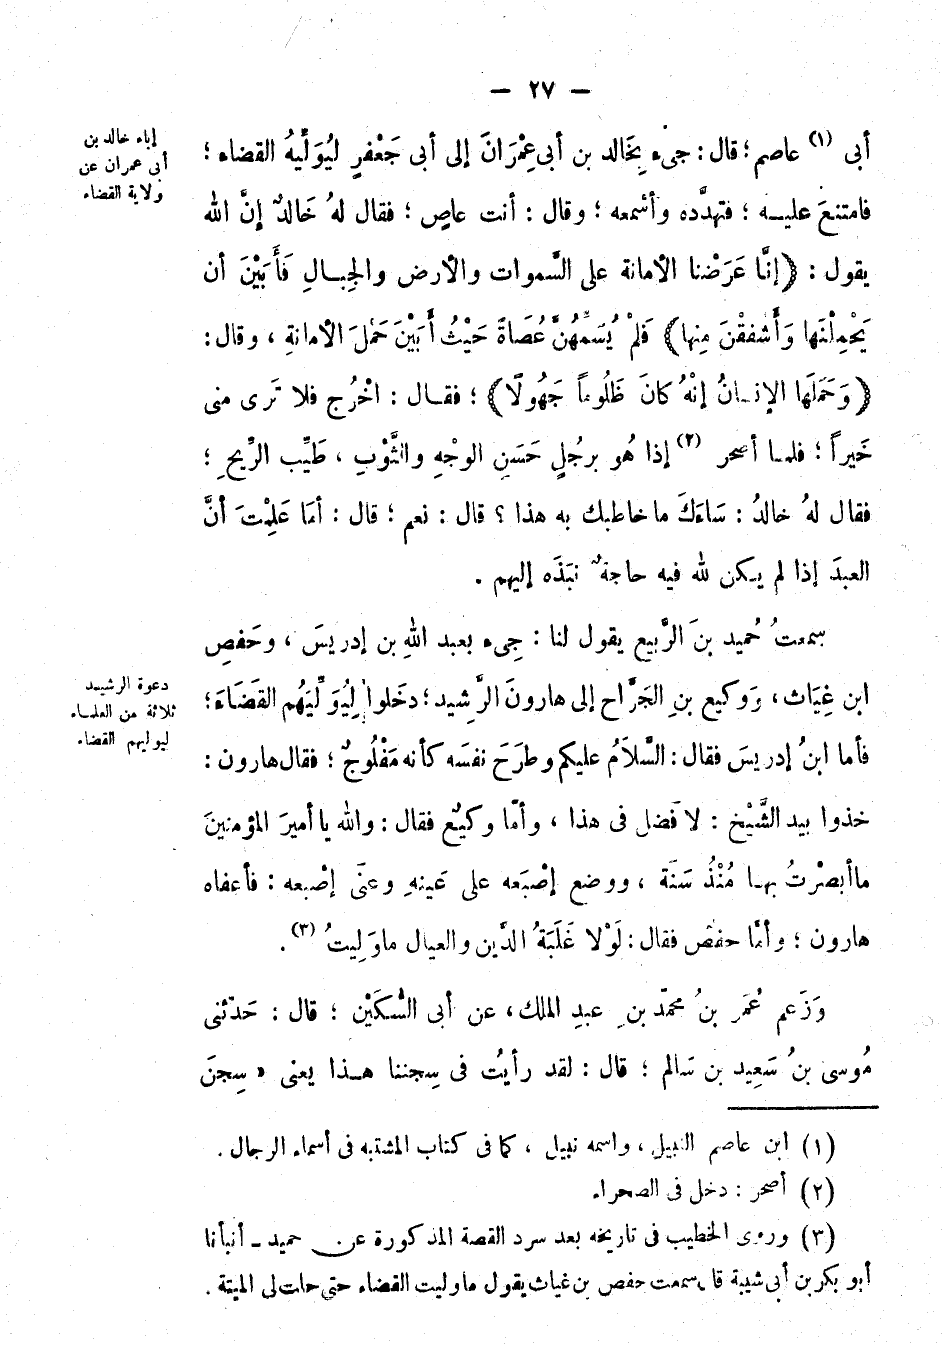 — ٢٧ —
إباء خالد بن
أبى عمران عن
ولاية القضاء
أبى (١) عاصم ؛ قال : جىء بِخَالد بن أبى عِمْرَانَ إلى أبى جَعْفرٍ ليُوَلِّيهُ القضاء ؛
فامتنعَ عليه ؛ فتهدَّده وأسْمعه ؛ وقال : أنت عاصٍ ؛ فقال لهُ خَالدٌ إنَّ الله
يقول : ﴿إنَّا عَرَضْنا الأمانة على السَّموات والأرض والجِبالِ فَأَبَيْنَ أن
يَحْمِلْنَها وَأَشفقْنَ مِنها﴾ فَلمْ يُسَمِّهُنَّ عُصَاةً حَيْثُ أَبَيْنَ حَمْلَ الأمانةِ ، وقال :
﴿وَحَمَلَها الإنسانُ إنَّهُ كانَ ظَلُوماً جَهُولًا﴾ ؛ فقال : اخْرُج فلا تَرى منى
خَيراً ؛ فلما أصحر (٢) إذا هُو برجُلٍ حَسَنِ الوجْهِ والثَّوْبِ ، طَيِّب الرِّيحِ ؛
فقال لهُ خالدُ : سَاءَكَ ما خاطبك به هذا ؟ قال : نعم ؛ قال : أمَا عَلِمْتَ أنَّ
العبدَ إذا لم يكن لله فيه حاجةٌ نبَذَه إليهم .
سمعتُ حُميد بنَ الرَّبيع يقول لنا : جِىء بعبد اللهِ بن إدريسَ ، وحَفصِ
دعوة الرشيد
ثلاثة من العلماء
ليوليهم القضاء
ابن غِيَاث ، وَوكيع بنِ الجَرَّاح إلى هارونَ الرَّشيد ؛ دخَلوا لِيُوَلِّيَهُم القَضَاءَ ؛
فأما ابنُ إدريسَ فقال : السَّلاَمُ عليكم وطرَحَ نفسَه كأنه مَفْلُوجٌ ؛ فقال هارون :
خذوا بيد الشَّيْخِ : لا فَضل فى هذا ، وأمّا وكيْع فقال : والله يا أميرَ المؤمنينَ
ما أبصرْتُ بها مُنْذُ سَنَة ، ووضع إصْبَعه على عَينهِ وعنَى إصْبعه : فأعفاه
هارون ؛ وأمَّا حفصٌ فقال : لَوْلا غَلَبَةُ الدَّين والعيال ماوَلِيتُ (٣) .
وَزَعم عُمَر بنُ محمّد بنِ عبدِ الملك ، عن أبى السُّكَيْن ؛ قال : حَدّثنى
مُوسى بنُ سَعِيد بن سَالم ؛ قال : لقد رأيْت فى سِجننا هذا يعنى « سِجنَ
(١) ابن عاصم النبيل ، واسمه نبيل ، كما فى كتاب المشتبه فى أسماء الرجال .
(٢) أصحر : دخل فى الصحراء .
(٣) وروى الخطيب فى تاريخه بعد سرد القصة المذكورة عن حميد ـ أنبأنا
أبو بكر بن أبى شيبة قال سمعت حفص بن غياث يقول ما وليت القضاء حتى حلت لى الميتة .